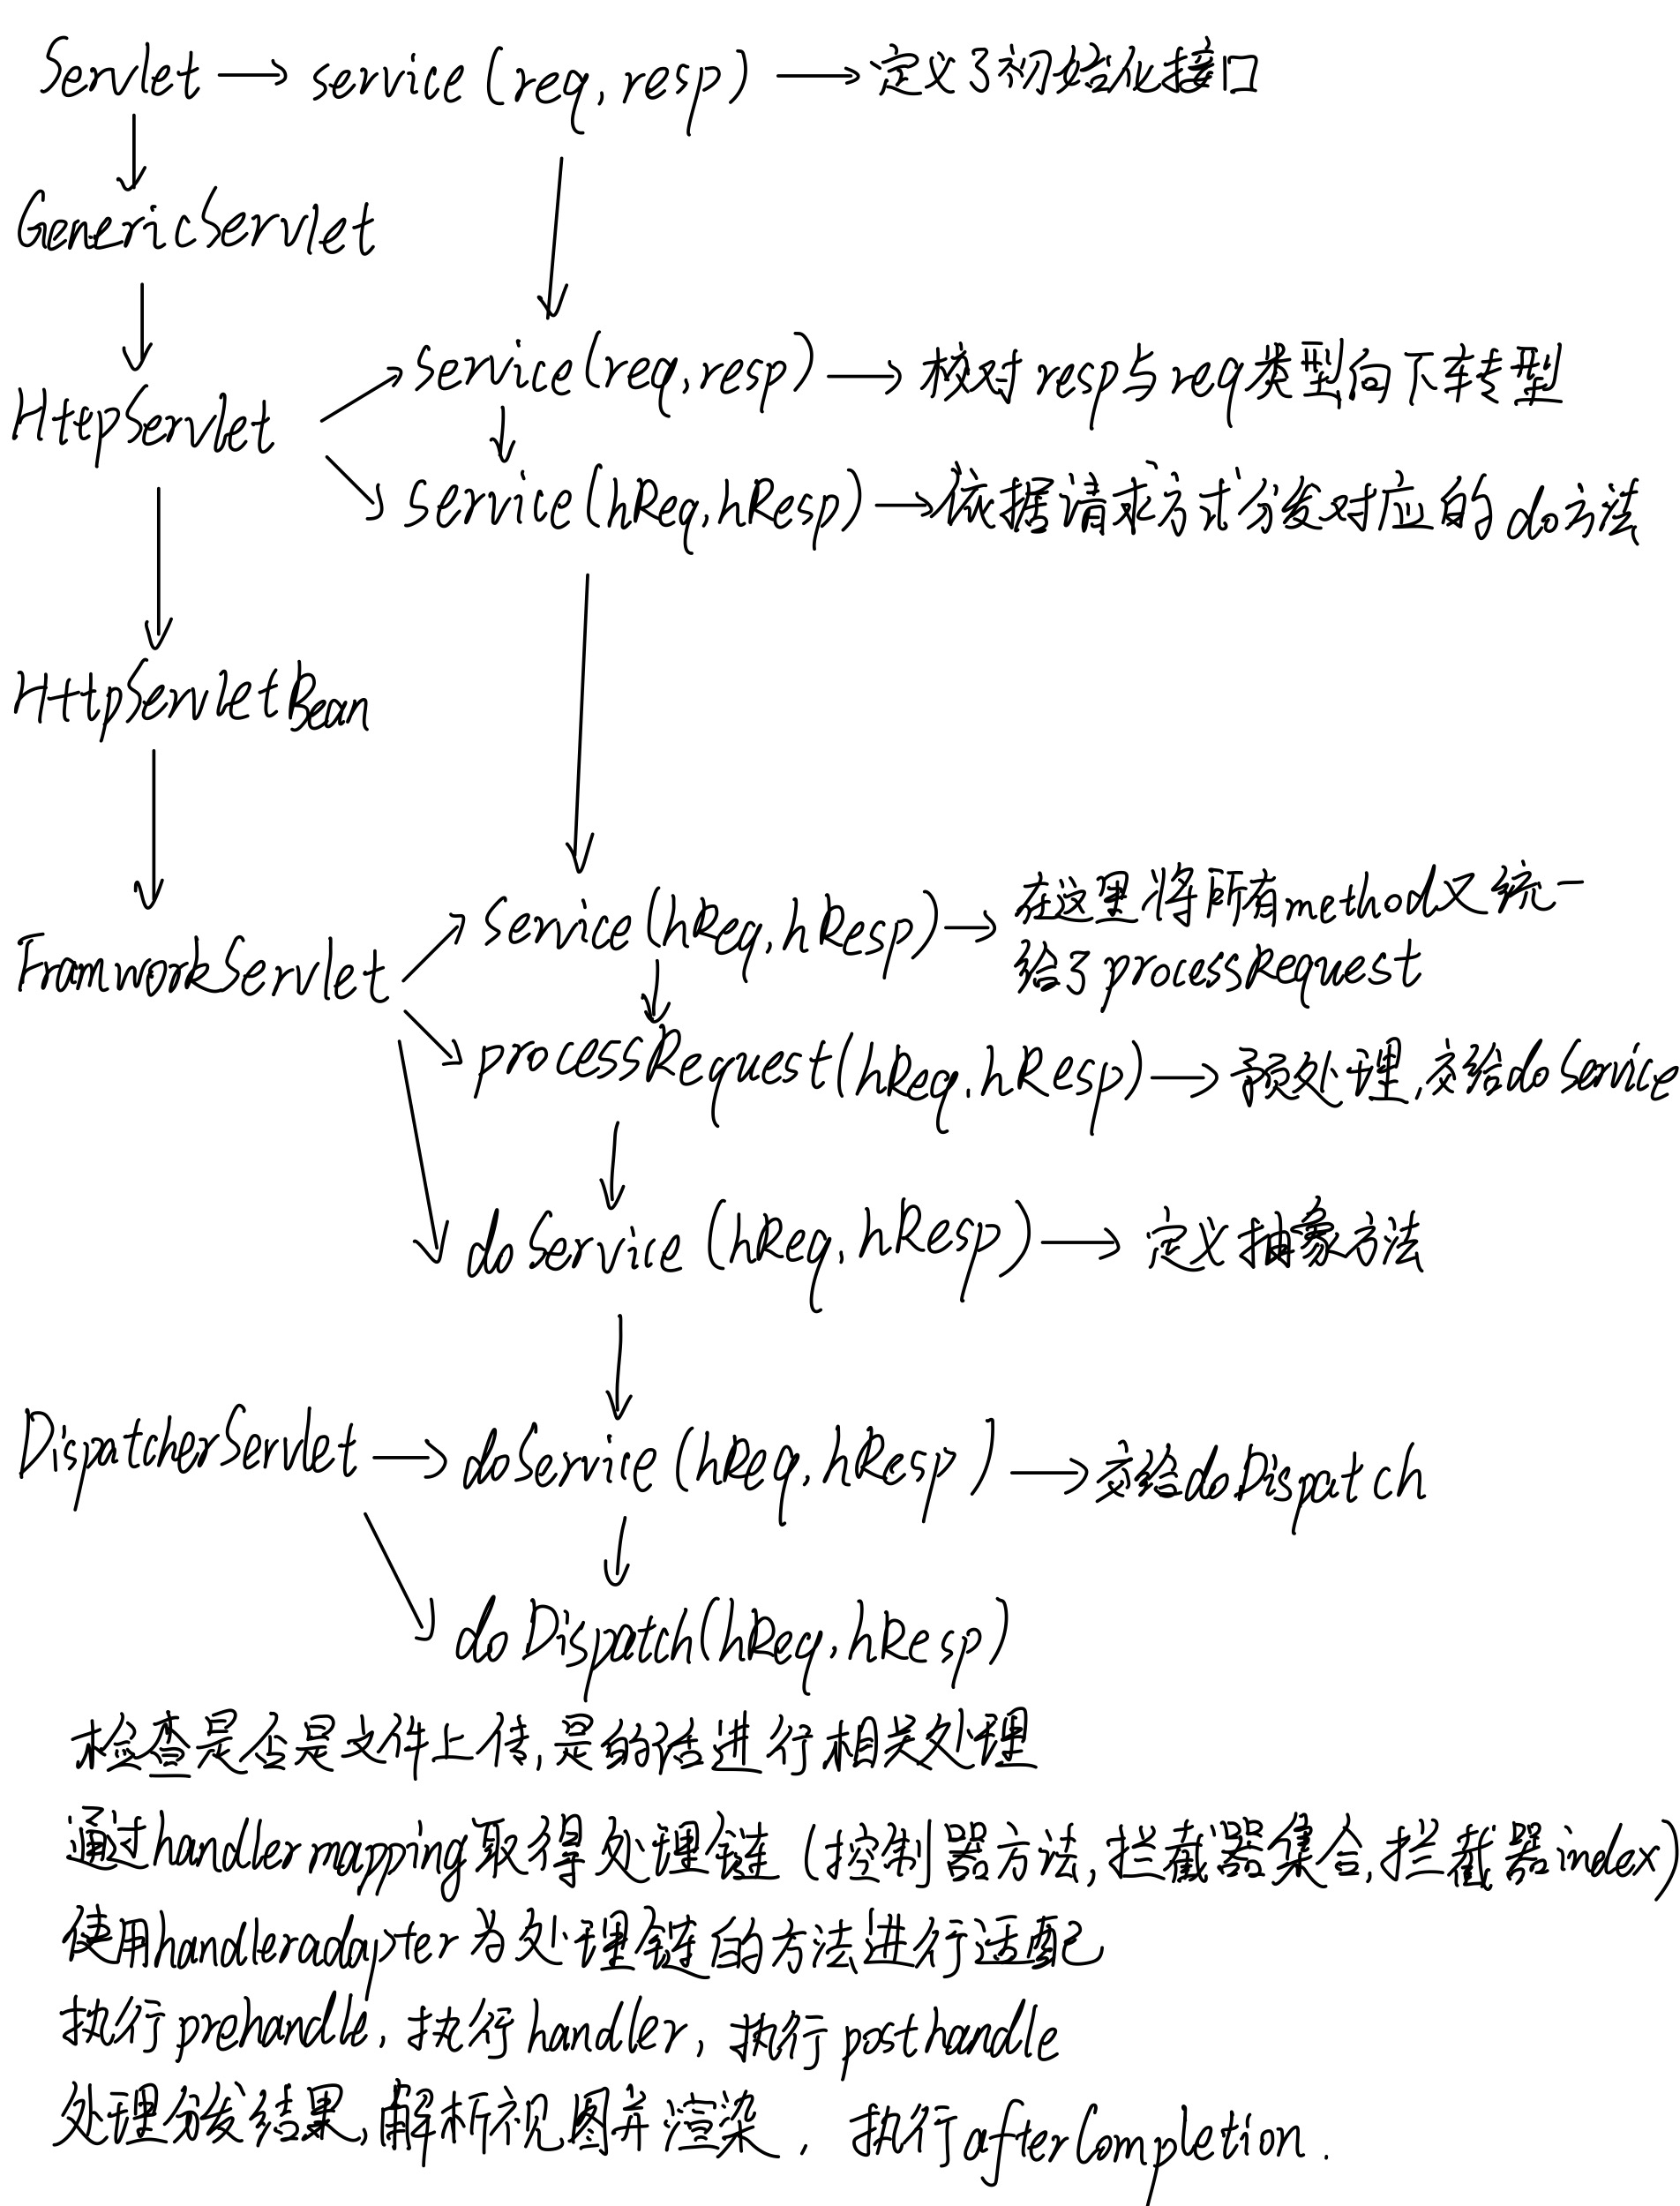 Servlet → service (req, resp) → 定义了初始化接口
GenericServlet
HttpServlet
service(req, resp) → 校对resp与req类型向下转型
service(hReq, hResp) → 依据请求方式分发对应的do方法
HttpServletBean
FramworkServlet
service(hReq, hResp) → 在这里将所有method又统一
给了processRequest
processRequest(hReq, hResp) → 预处理,交给doService
doService (hReq, hResp) → 定义抽象方法
DispatcherServlet → doService (hReq, hResp) → 交给doDispatch
doDispatch(hReq, hResp)
检查是否是文件上传,是的话进行相关处理
通过handlermapping取得处理链 (控制器方法,拦截器集合,拦截器index)
使用handleradapter为处理链的方法进行适配
执行prehandle, 执行handler, 执行posthandle
处理分发结果,解析视图并渲染, 执行afterCompletion.